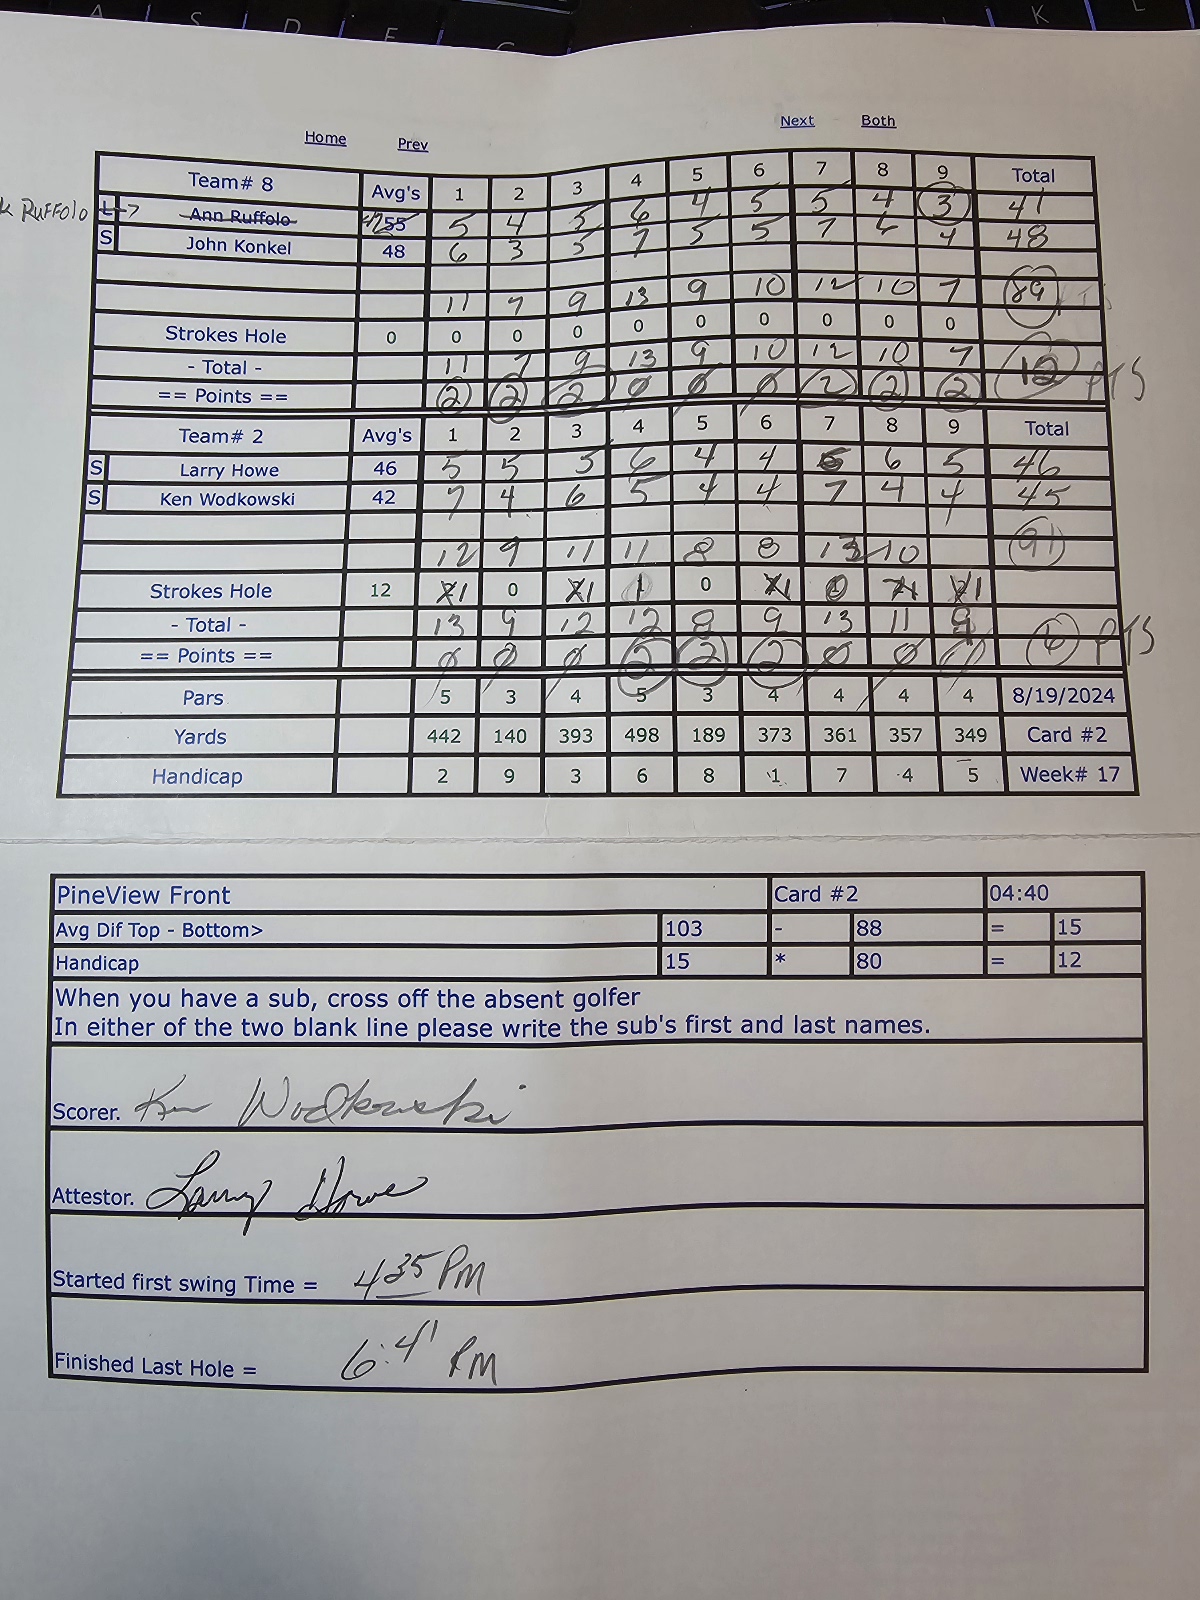 A S D F G K L
Home Prev Next Both
Team# 8 Avg's 1 2 3 4 5 6 7 8 9 Total
k Ruffolo L Ann Ruffolo 55 5 4 5 6 4 5 5 4 3 41
S John Konkel 48 6 3 5 7 5 5 7 6 4 48
11 7 9 13 9 10 12 10 7 89
Strokes Hole 0 0 0 0 0 0 0 0 0 0
- Total - 11 7 9 13 9 10 12 10 7
== Points == 2 2 2 0 0 0 2 2 2 12 PTS
Team# 2 Avg's 1 2 3 4 5 6 7 8 9 Total
S Larry Howe 46 5 5 5 6 4 4 6 6 5 46
S Ken Wodkowski 42 7 4 6 5 4 4 7 4 4 45
12 9 11 11 8 8 13 10 91
Strokes Hole 12 1 0 1 1 0 1 0 1 1
- Total - 13 9 12 12 8 9 13 11 9
== Points == 0 0 0 2 2 2 0 0 0 6 PTS
Pars 5 3 4 5 3 4 4 4 4 8/19/2024
Yards 442 140 393 498 189 373 361 357 349 Card #2
Handicap 2 9 3 6 8 1 7 4 5 Week# 17
PineView Front Card #2 04:40
Avg Dif Top - Bottom> 103 - 88 = 15
Handicap 15 * 80 = 12
When you have a sub, cross off the absent golfer
In either of the two blank line please write the sub's first and last names.
Scorer. Ken Wodkowski
Attestor. Larry Howe
Started first swing Time = 4 35 PM
Finished Last Hole = 6:41 PM